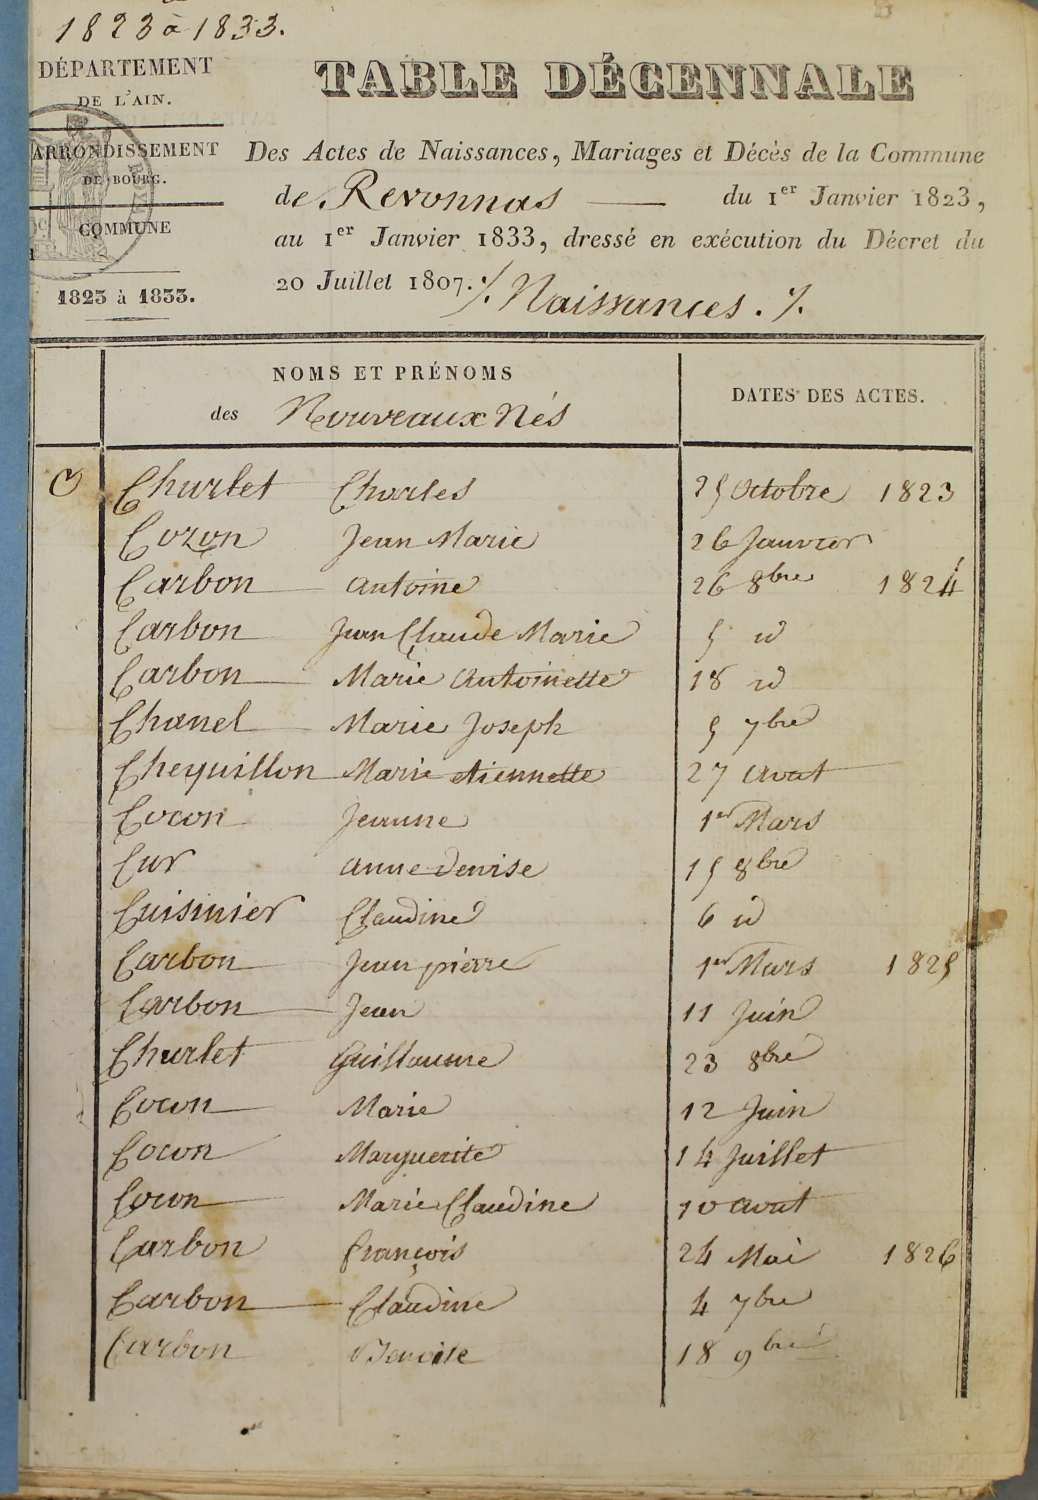 1823 à 1833.
DÉPARTEMENT
DE L'AIN.
ARRONDISSEMENT
DE BOURG.
COMMUNE
1823 à 1833.
TABLE DÉCENNALE
Des Actes de Naissances, Mariages et Décès de la Commune
de Revonnas — du 1er Janvier 1823,
au 1er Janvier 1833, dressé en exécution du Décret du
20 Juillet 1807. ./. Naissances. ./.
NOMS ET PRÉNOMS
des Nouveaux Nés
DATES DES ACTES.
C Churlet Charles 25 Octobre 1823
Cozon Jean Marie 26 Janvier
Carbon Antoine 26 8bre 1824
Carbon Jean Claude Marie 5 id
Carbon Marie Antoinette 18 id
Chanel Marie Joseph 5 7bre
Chequillon Marie Etiennette 27 Avout
Cocon Jeanne 1er Mars
Cur Anne denise 15 8bre
Cuisinier Claudine 6 id
Carbon Jean pierre 1er Mars 1825
Carbon Jean 11 Juin
Churlet Guillaume 23 8bre
Cocon Marie 12 Juin
Cocon Marguerite 14 Juillet
Cocon Marie Claudine 10 avout
Carbon françois 24 Mai 1826
Carbon Claudine 4 7bre
Carbon Benoite 18 9bre